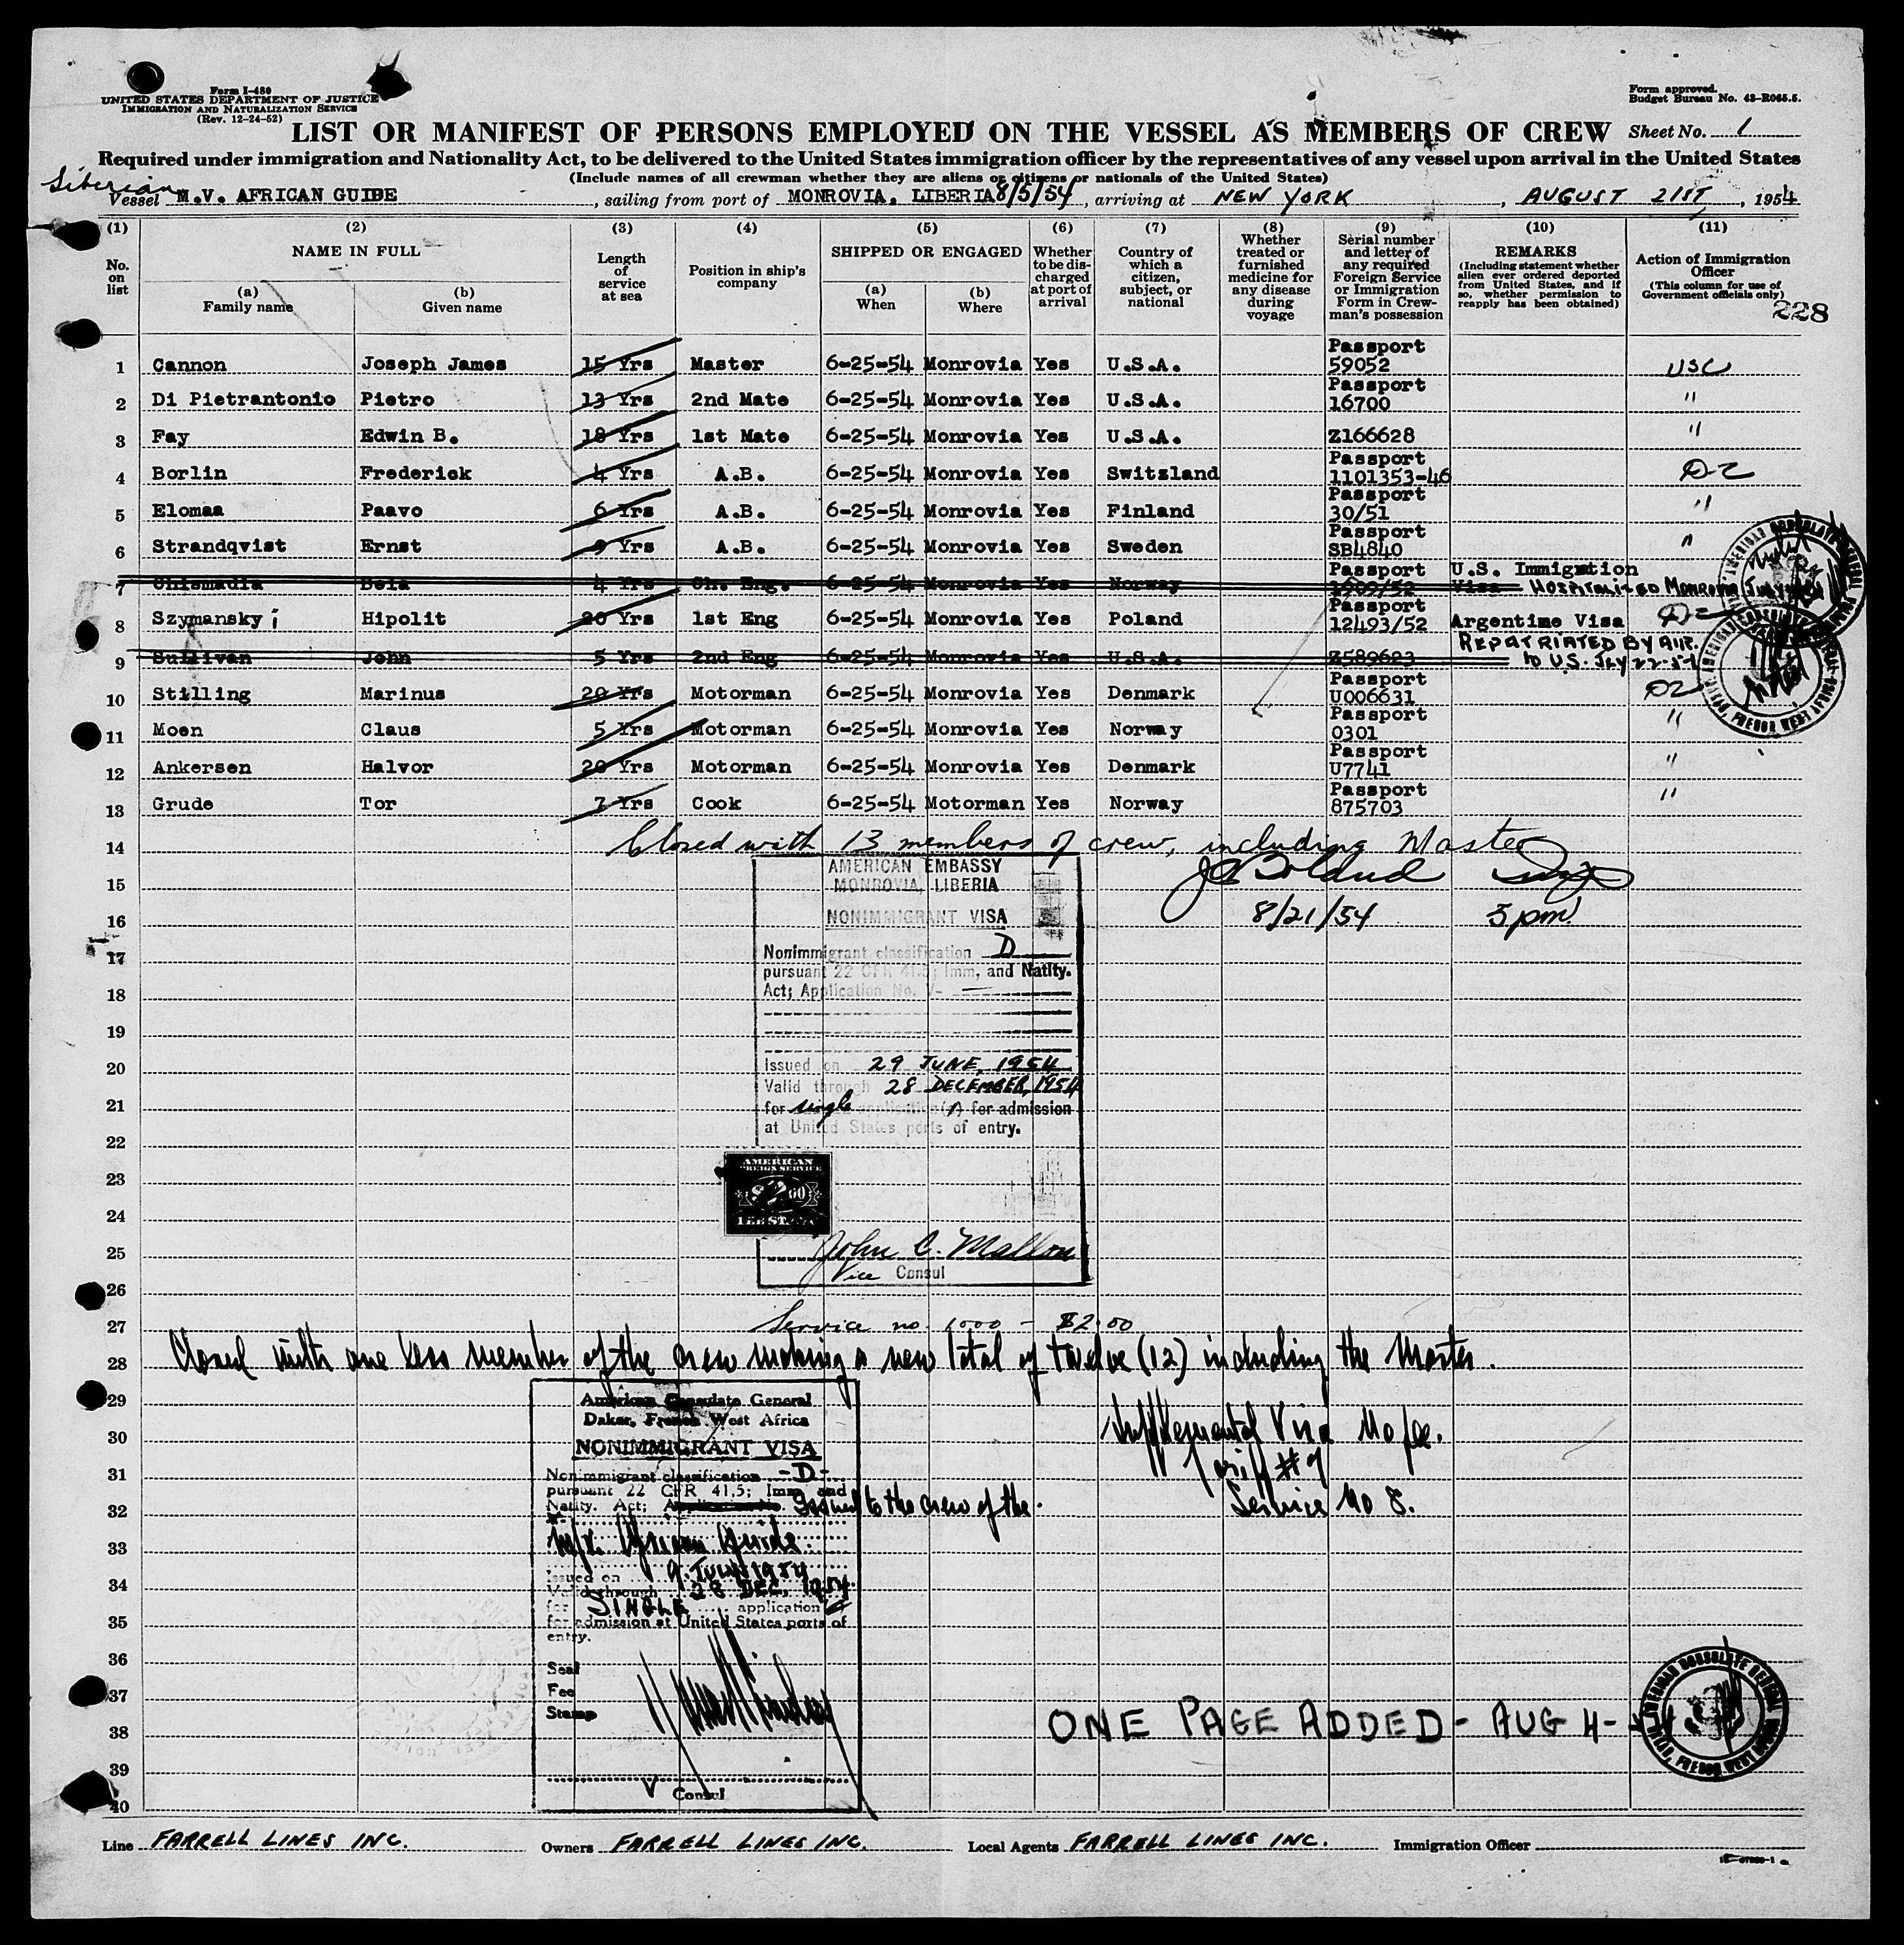 Form I-480
UNITED STATES DEPARTMENT OF JUSTICE
IMMIGRATION AND NATURALIZATION SERVICE
(Rev. 12-24-52)
Form approved.
Budget Bureau No. 43-R065.5.
LIST OR MANIFEST OF PERSONS EMPLOYED ON THE VESSEL AS MEMBERS OF CREW Sheet No. 1
Required under immigration and Nationality Act, to be delivered to the United States immigration officer by the representatives of any vessel upon arrival in the United States
(Include names of all crewman whether they are aliens or citizens or nationals of the United States)
Vessel M.V. AFRICAN GUIDE, sailing from port of MONROVIA, LIBERIA 8/5/54, arriving at NEW YORK, AUGUST 21ST, 1954
(1) (2) (3) (4) (5) (6) (7) (8) (9) (10) (11)
No. on list
NAME IN FULL
(a) Family name
(b) Given name
Length of service at sea
Position in ship's company
SHIPPED OR ENGAGED
(a) When
(b) Where
Whether to be discharged at port of arrival
Country of which a citizen, subject, or national
Whether treated or furnished medicine for any disease during voyage
Serial number and letter of any required Foreign Service or Immigration Form in Crewman's possession
REMARKS
(Including statement whether alien ever ordered deported from United States, and if so, whether permission to reapply has been obtained)
Action of Immigration Officer
(This column for use of Government officials only)
228
1 Cannon Joseph James 15 Yrs Master 6-25-54 Monrovia Yes U.S.A. Passport 59052 USC
2 Di Pietrantonio Pietro 13 Yrs 2nd Mate 6-25-54 Monrovia Yes U.S.A. Passport 16700 "
3 Fay Edwin B. 18 Yrs 1st Mate 6-25-54 Monrovia Yes U.S.A. Z166628 "
4 Borlin Frederick 4 Yrs A.B. 6-25-54 Monrovia Yes Switzland Passport 1101353-46 D-2
5 Elomaa Paavo 6 Yrs A.B. 6-25-54 Monrovia Yes Finland Passport 30/51 "
6 Strandqvist Ernst 9 Yrs A.B. 6-25-54 Monrovia Yes Sweden Passport SB4840 "
7 Chismadia Bela 4 Yrs Ch. Eng. 6-25-54 Monrovia Yes Norway Passport 1909/52 U.S. Immigration Visa HOSPITALIZED MONROVIA
8 Szymanskyi Hipolit 20 Yrs 1st Eng 6-25-54 Monrovia Yes Poland Passport 12493/52 Argentime Visa D-2
9 Sullivan John 5 Yrs 2nd Eng 6-25-54 Monrovia Yes U.S.A. Z589623 REPATRIATED BY AIR. to U.S. JLY 22-54
10 Stilling Marinus 20 Yrs Motorman 6-25-54 Monrovia Yes Denmark Passport U006631 D2
11 Moen Claus 5 Yrs Motorman 6-25-54 Monrovia Yes Norway Passport 0301 "
12 Ankersen Halvor 20 Yrs Motorman 6-25-54 Monrovia Yes Denmark Passport U7741 "
13 Grude Tor 7 Yrs Cook 6-25-54 Motorman Yes Norway Passport 875703 "
14 Closed with 13 members of crew, including Master
15
16 8/21/54 5 pm
17
18
19
20
21
22
23
24
25
26
AMERICAN EMBASSY
MONROVIA, LIBERIA
NONIMMIGRANT VISA
Nonimmigrant classification D
pursuant 22 CFR 41.5; Imm, and Natlty.
Act; Application No. V-
Issued on 29 JUNE, 1954
Valid through 28 DECEMBER, 1954
for single application(s) for admission
at United States ports of entry.
AMERICAN
FOREIGN SERVICE
John C. Mallon
Vice Consul
27 Service no. 1000 - $2.00
28 Closed with one less member of the crew making a new total of twelve (12) including the Master.
29
30
31
32
33
34
35
36
37
38
39
40
American Consulate General
Dakar, French West Africa
NONIMMIGRANT VISA
Nonimmigrant classification -D-
pursuant 22 CFR 41.5; Imm and
Natlty. Act; Application No. Issued to the crew of the
M/V. African Guide
Issued on 9 July 1954
Valid through 28 DEC. 1954
for SINGLE application
for admission at United States ports of
entry.
Seal
Fee
Stamp
V Consul
Supplemental Visa No fee.
Tariff #9
Service No 8.
ONE PAGE ADDED - AUG 4-
Line FARRELL LINES INC.
Owners FARRELL LINES INC.
Local Agents FARRELL LINES INC.
Immigration Officer